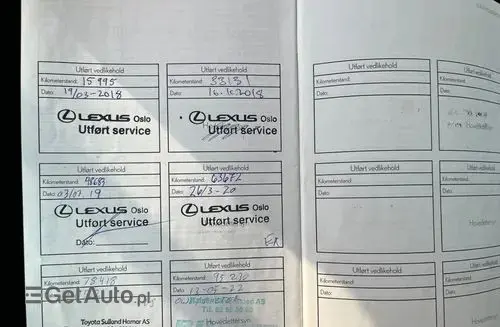 Utført vedlikehold
Kilometerstand: 15 995
Dato: 19/03-2018
LEXUS Oslo
Utført service
Utført vedlikehold
Kilometerstand: 33131
Dato: 2018
LEXUS Oslo
Utført service
Utført vedlikehold
Kilometerstand:
Dato:
Utført vedlikehold
Kilometerstand:
Dato:
Utført vedlikehold
Kilometerstand: 48689
Dato: 03/07.19
LEXUS Oslo
Utført service
Dato:
Utført vedlikehold
Kilometerstand: 63672
Dato: 26/3-20
LEXUS Oslo
Utført service
Utført vedlikehold
Kilometerstand:
Dato:
Utført vedlikehold
Kilometerstand:
Dato:
Hovedettersyn
Utført vedlikehold
Kilometerstand: 78418
Dato:
Toyota Sulland Hamar AS
Utført vedlikehold
Kilometerstand: 95 230
Dato: 12-05-22
Hovedettersyn
Utført vedlikehold
Kilometerstand:
Dato:
Utført vedlikehold
Kilometerstand:
Dato:
GetAuto.pl